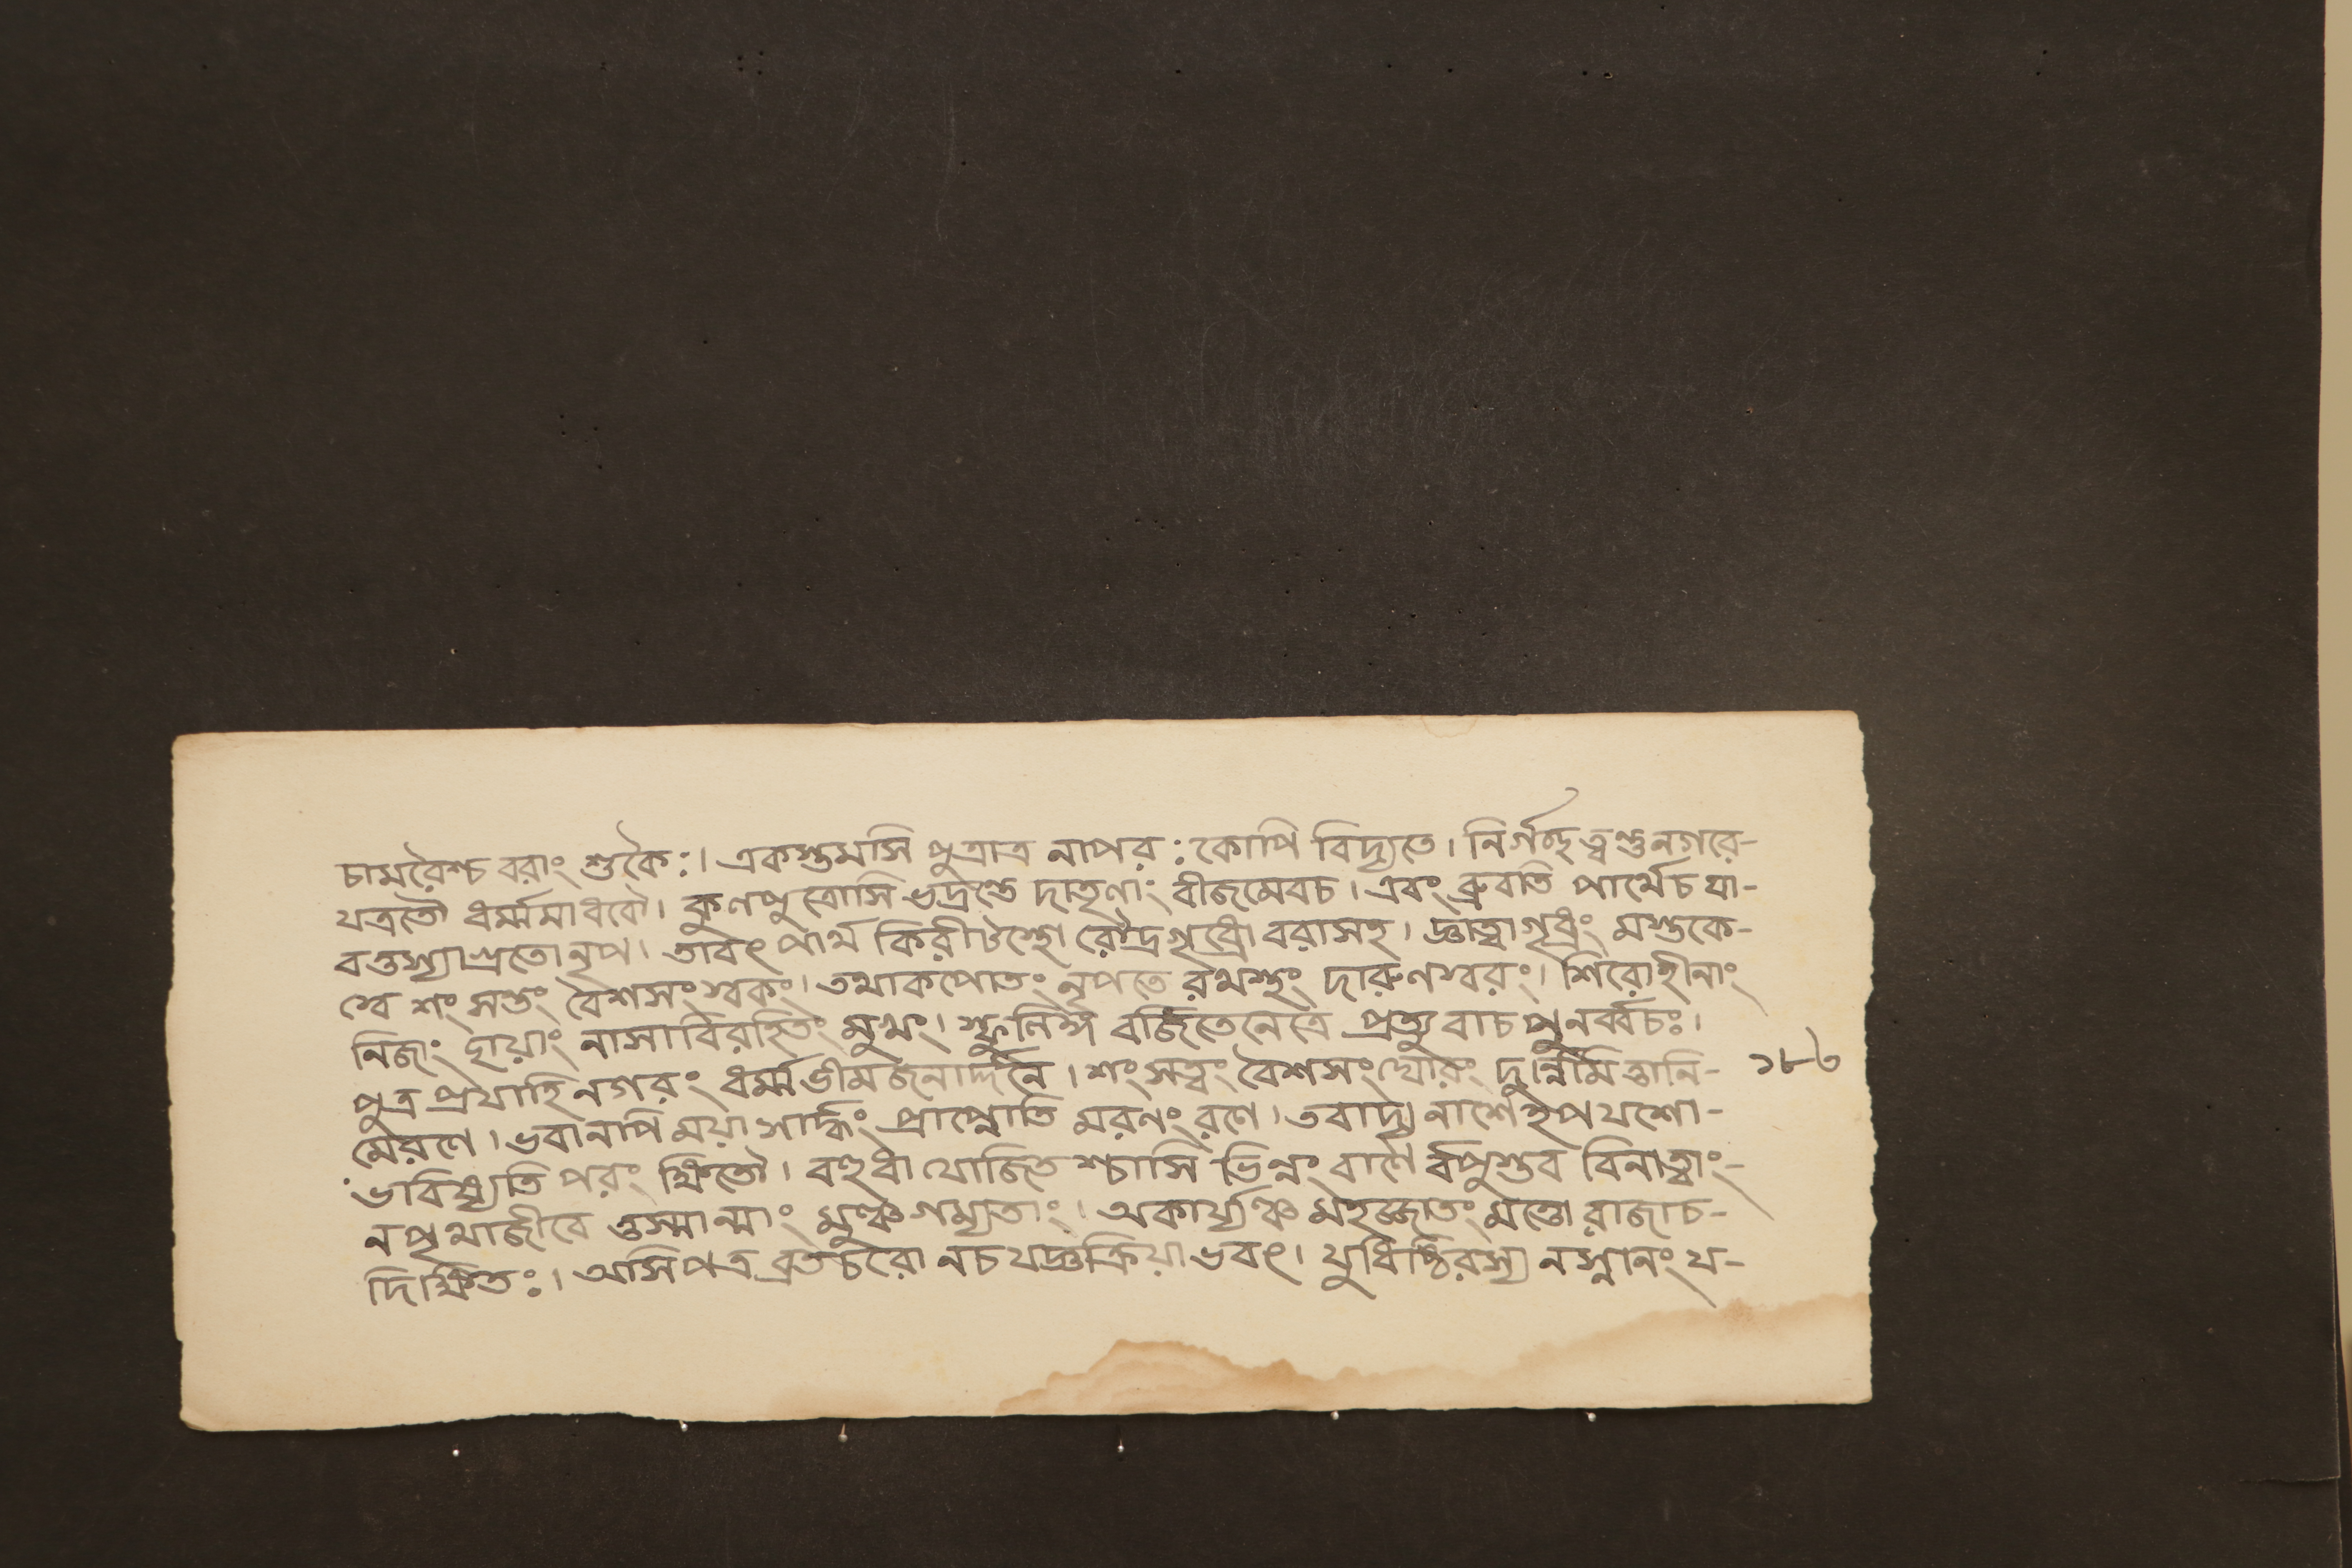 চামরৈশ্চ বরাং শুকৈঃ। একস্তমসি পুত্রাত্র নাপরঃ কোপি বিদ্যতে। নির্গচ্ছ ত্বণ্ডনগরে-
যত্রতৌ ধর্ম্মমাধবৌ। কুণপুত্রোসি ভদ্রন্তে দাতৃণাং বীজমেবচ। এবং ব্রুবতি পার্থেচ যা-
বত্তস্যাগ্রতো নৃপ। তাবৎ পার্থ কিরীটস্থো রৌদ্রগৃধ্রো বরাসহ। জ্ঞাত্বাগৃধ্রং মস্তকে-
স্বে শংসন্তং বৈশসং স্বকং। তথাকপোতং নৃপতে রথস্থং দারুণস্বরং। শিরোহীনাং
নিজাং ছায়াং নাসাবিরহিতং মুখং। স্ফুলিঙ্গ বর্জিতেনেত্রে প্রত্যুবাচ পুনর্ব্বচঃ।
পুত্র প্রযাহি নগরং ধর্ম্মভীমজনার্দ্দনে। শংসত্বং বৈশসং ঘোরং দুর্ন্নিমিত্তানি- ১৮৬
মেরণে। ভবানপি ময়া সার্দ্ধং প্রাপ্নোতি মরনং রণে। তবাদ্য নাশেহ পযশো-
ভাবিষ্যতি পরং ক্ষিতৌ। বহুধা যোজিত শ্চাসি ভিন্নং বাণৈ র্বপুস্তব বিনাত্বাং-
নপৃথাজীবে ত্তস্মান্মাং মুঞ্চ গম্যতাং। অকার্য্যঞ্চ মহজ্জাতং মত্তো রাজাচ-
দিক্ষিতঃ। অসিপত্র ব্রতচরো নচ যজ্ঞক্রিয়া ভবৎ। যুধিষ্ঠিরস্য নস্নানং য-